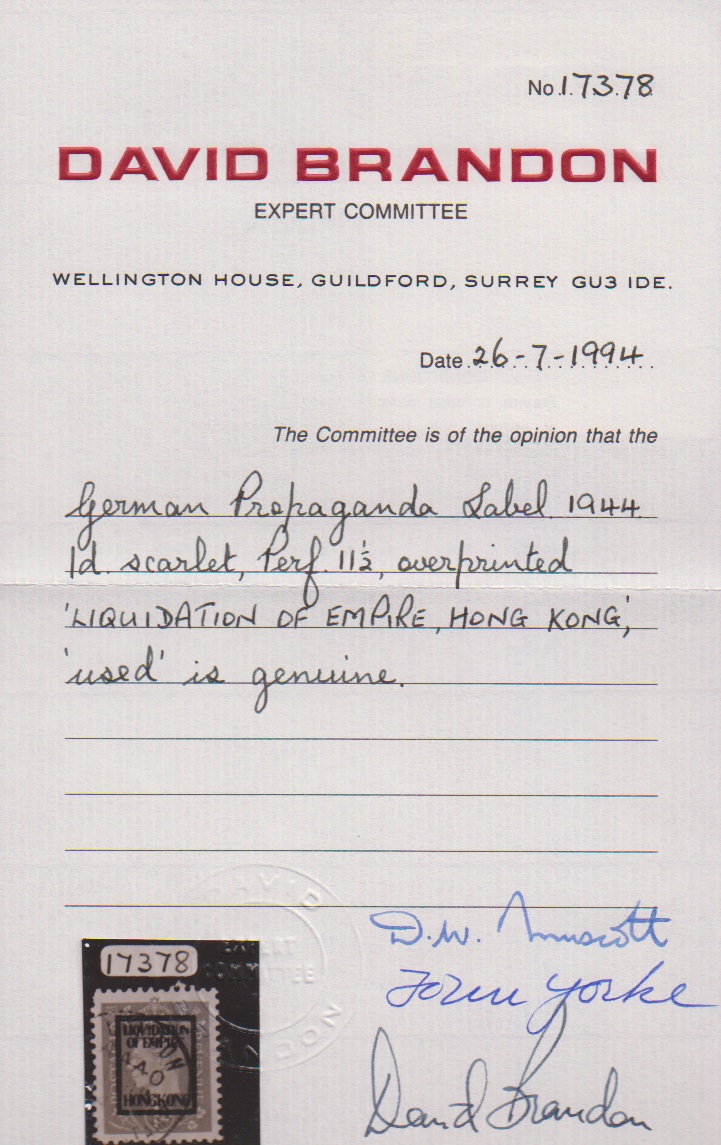 No. 17378
DAVID BRANDON
EXPERT COMMITTEE
WELLINGTON HOUSE, GUILDFORD, SURREY GU3 1DE.
Date 26-7-1994
The Committee is of the opinion that the
German Propaganda Label 1944
1d scarlet, Perf. 11½, overprinted
'LIQUIDATION OF EMPIRE, HONG KONG',
'used' is genuine.
DAVID
BRANDON
EXPERT
COMMITTEE
D.W.
Yorke
David Brandon
17378
LIQUIDATION
OF EMPIRE
HONGKONG